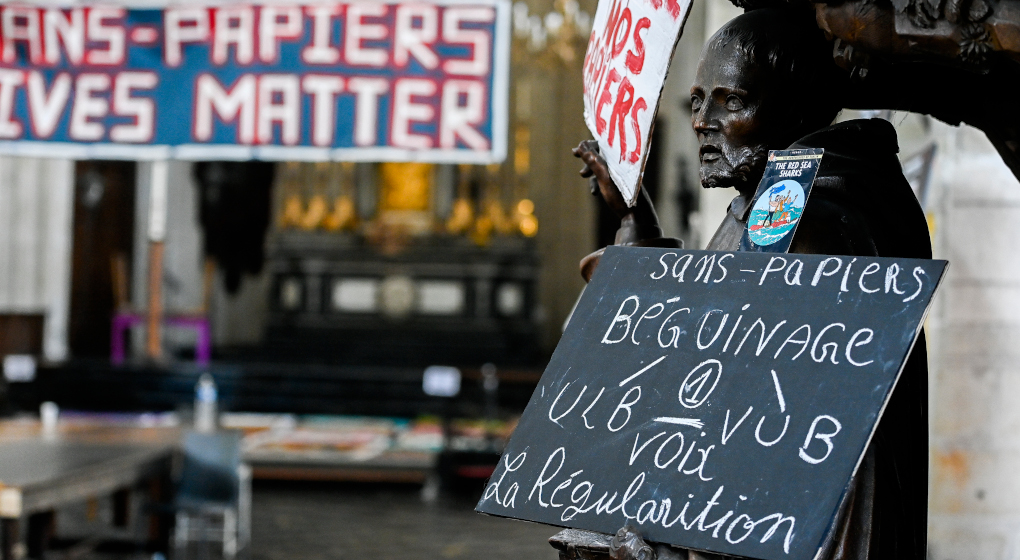 ANS-PAPIERS
IVES MATTER
NOS
PAPIERS
THE RED SEA
SHARKS
Sans-Papiers
BÉGUINAGE
ULB ① VUB
voix
La Régularition